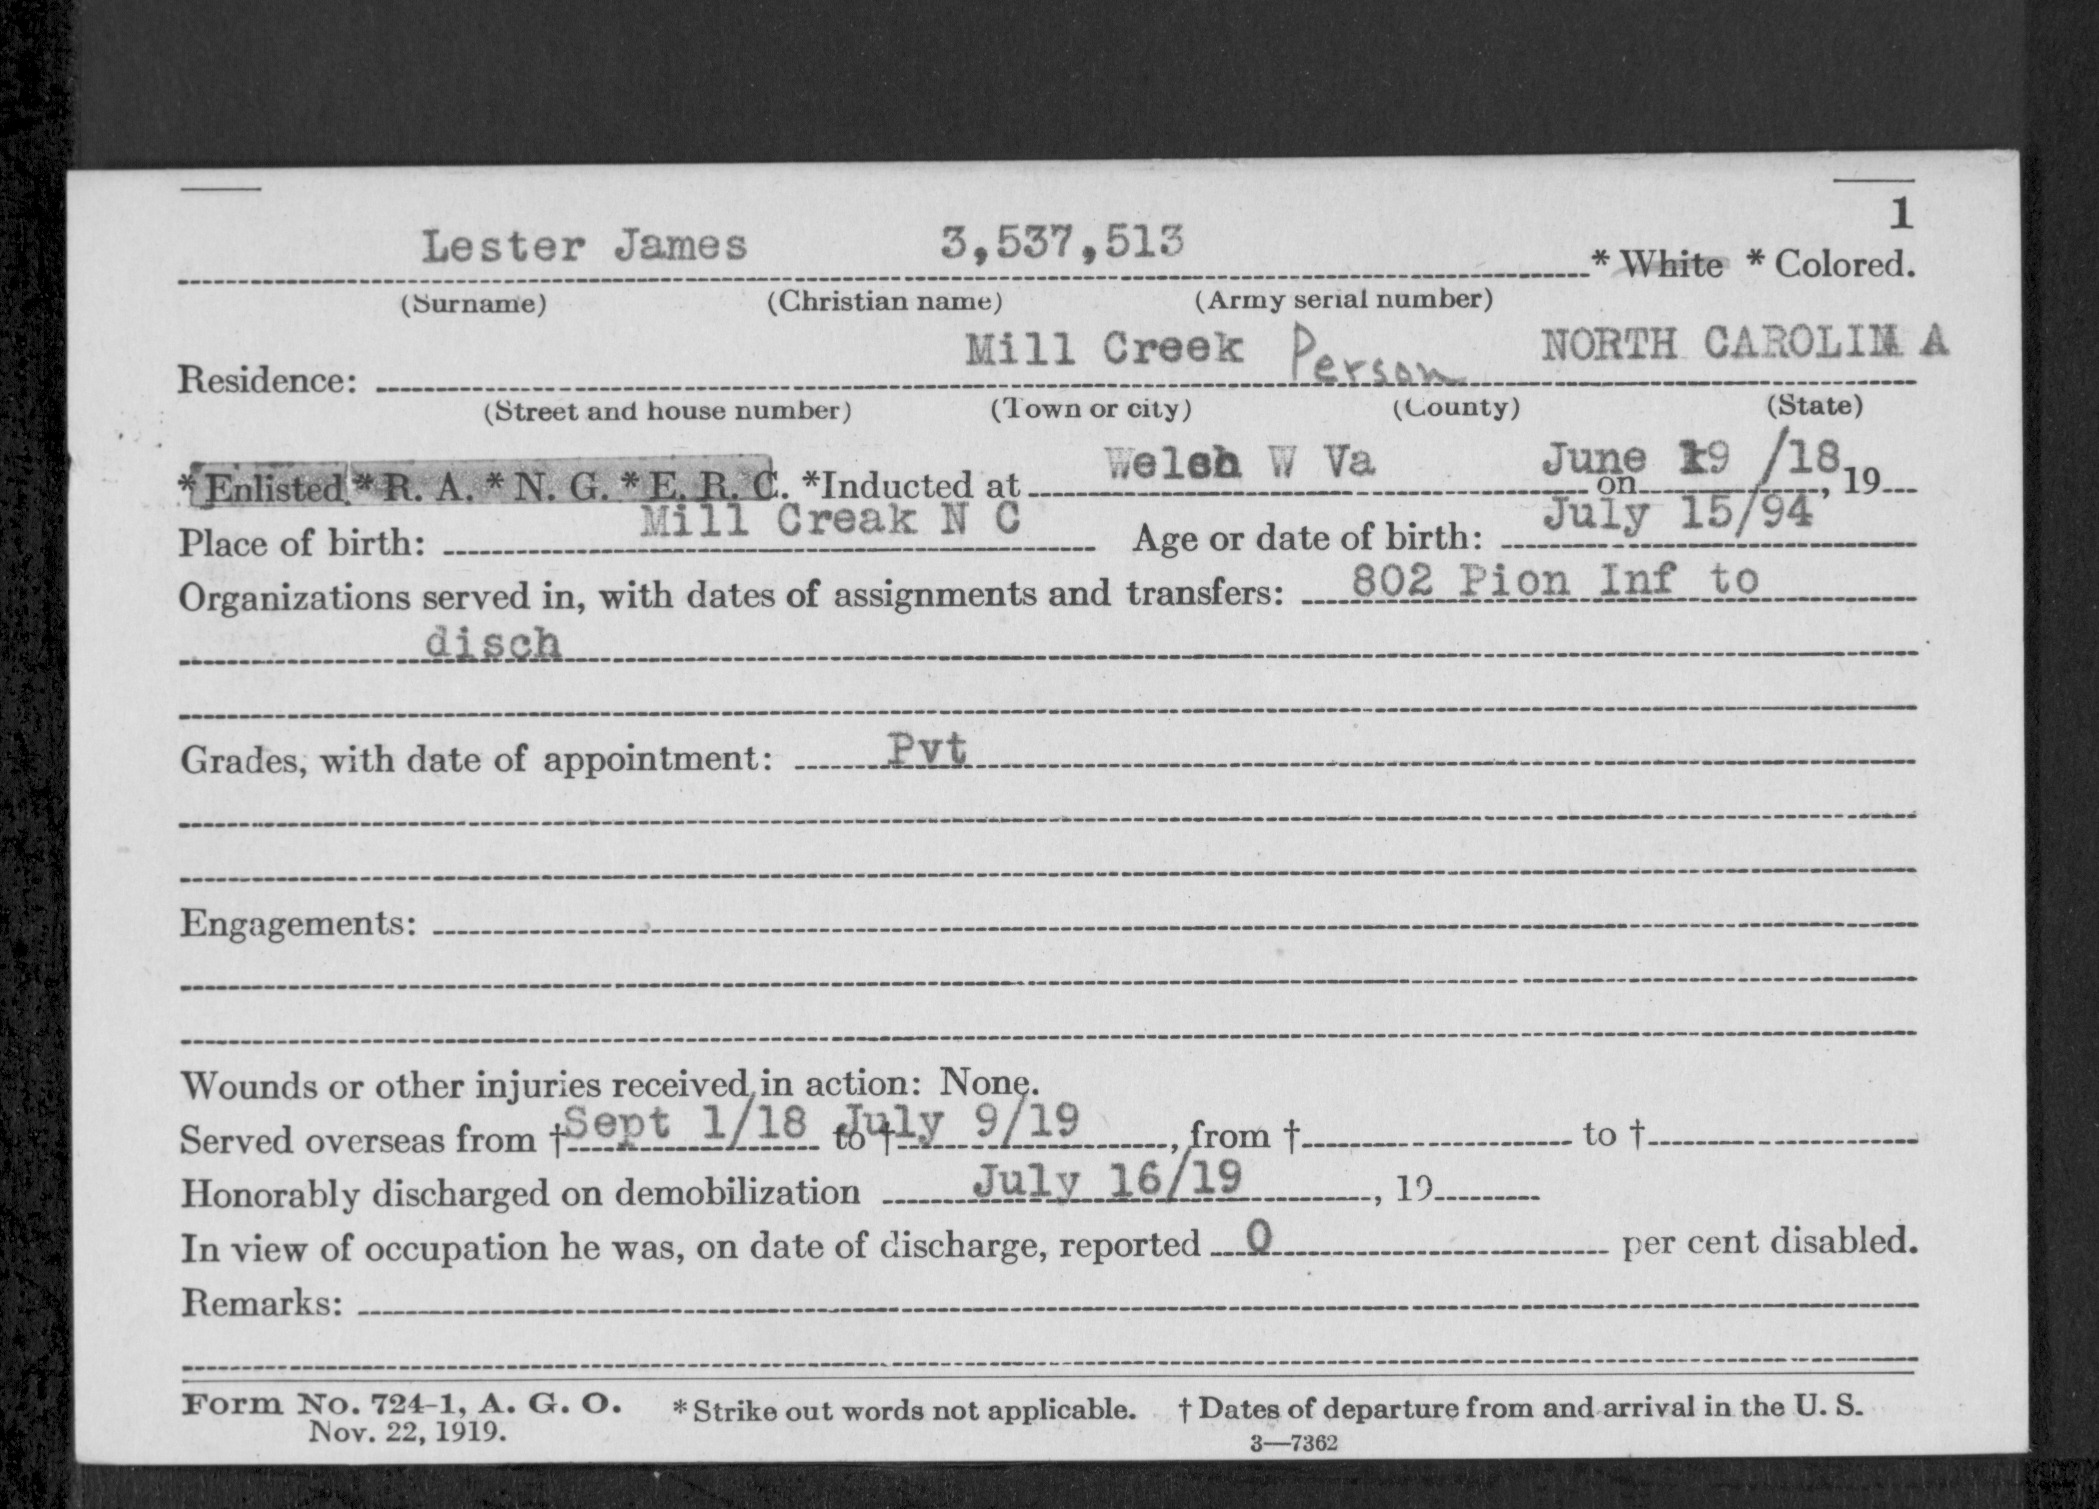 1
Lester James 3,537,513 * White * Colored.
(Surname) (Christian name) (Army serial number)
Residence: Mill Creek Person NORTH CAROLINA
(Street and house number) (Town or city) (County) (State)
*Enlisted *R. A. *N. G. *E. R. C. *Inducted at Welch W Va on June 19 /18, 19
Place of birth: Mill Creak N C Age or date of birth: July 15/94
Organizations served in, with dates of assignments and transfers: 802 Pion Inf to
disch
Grades, with date of appointment: Pvt
Engagements:
Wounds or other injuries received in action: None.
Served overseas from † Sept 1/18 to † July 9/19, from † to †
Honorably discharged on demobilization July 16/19, 19
In view of occupation he was, on date of discharge, reported 0 per cent disabled.
Remarks:
Form No. 724-1, A. G. O. * Strike out words not applicable. † Dates of departure from and arrival in the U. S.
Nov. 22, 1919. 3—7362